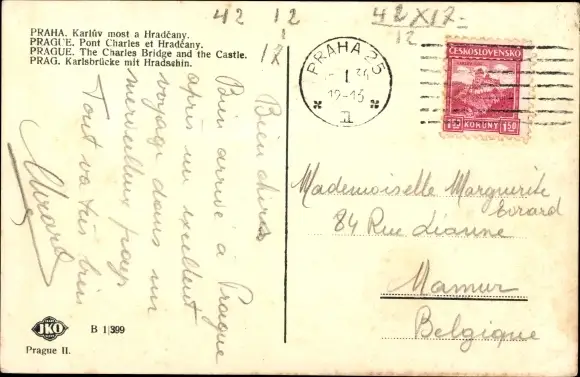 42 12 42 X 12
12
12
PRAHA. Karlův most a Hradčany.
PRAGUE. Pont Charles et Hradčany.
PRAGUE. The Charles Bridge and the Castle.
PRAG. Karlsbrücke mit Hradschin.
PRAHA 25
I
12-13
II
ČESKOSLOVENSKO
1.50 KORUNY 1.50
Bien chère
Bien arrivé à Prague
après un excellent
voyage dans un
merveilleux pays
Tout va très bien
Mademoiselle Marguerite
Evrard
84 Rue
Namur
Belgique
JKO
B 1|399
Prague II.